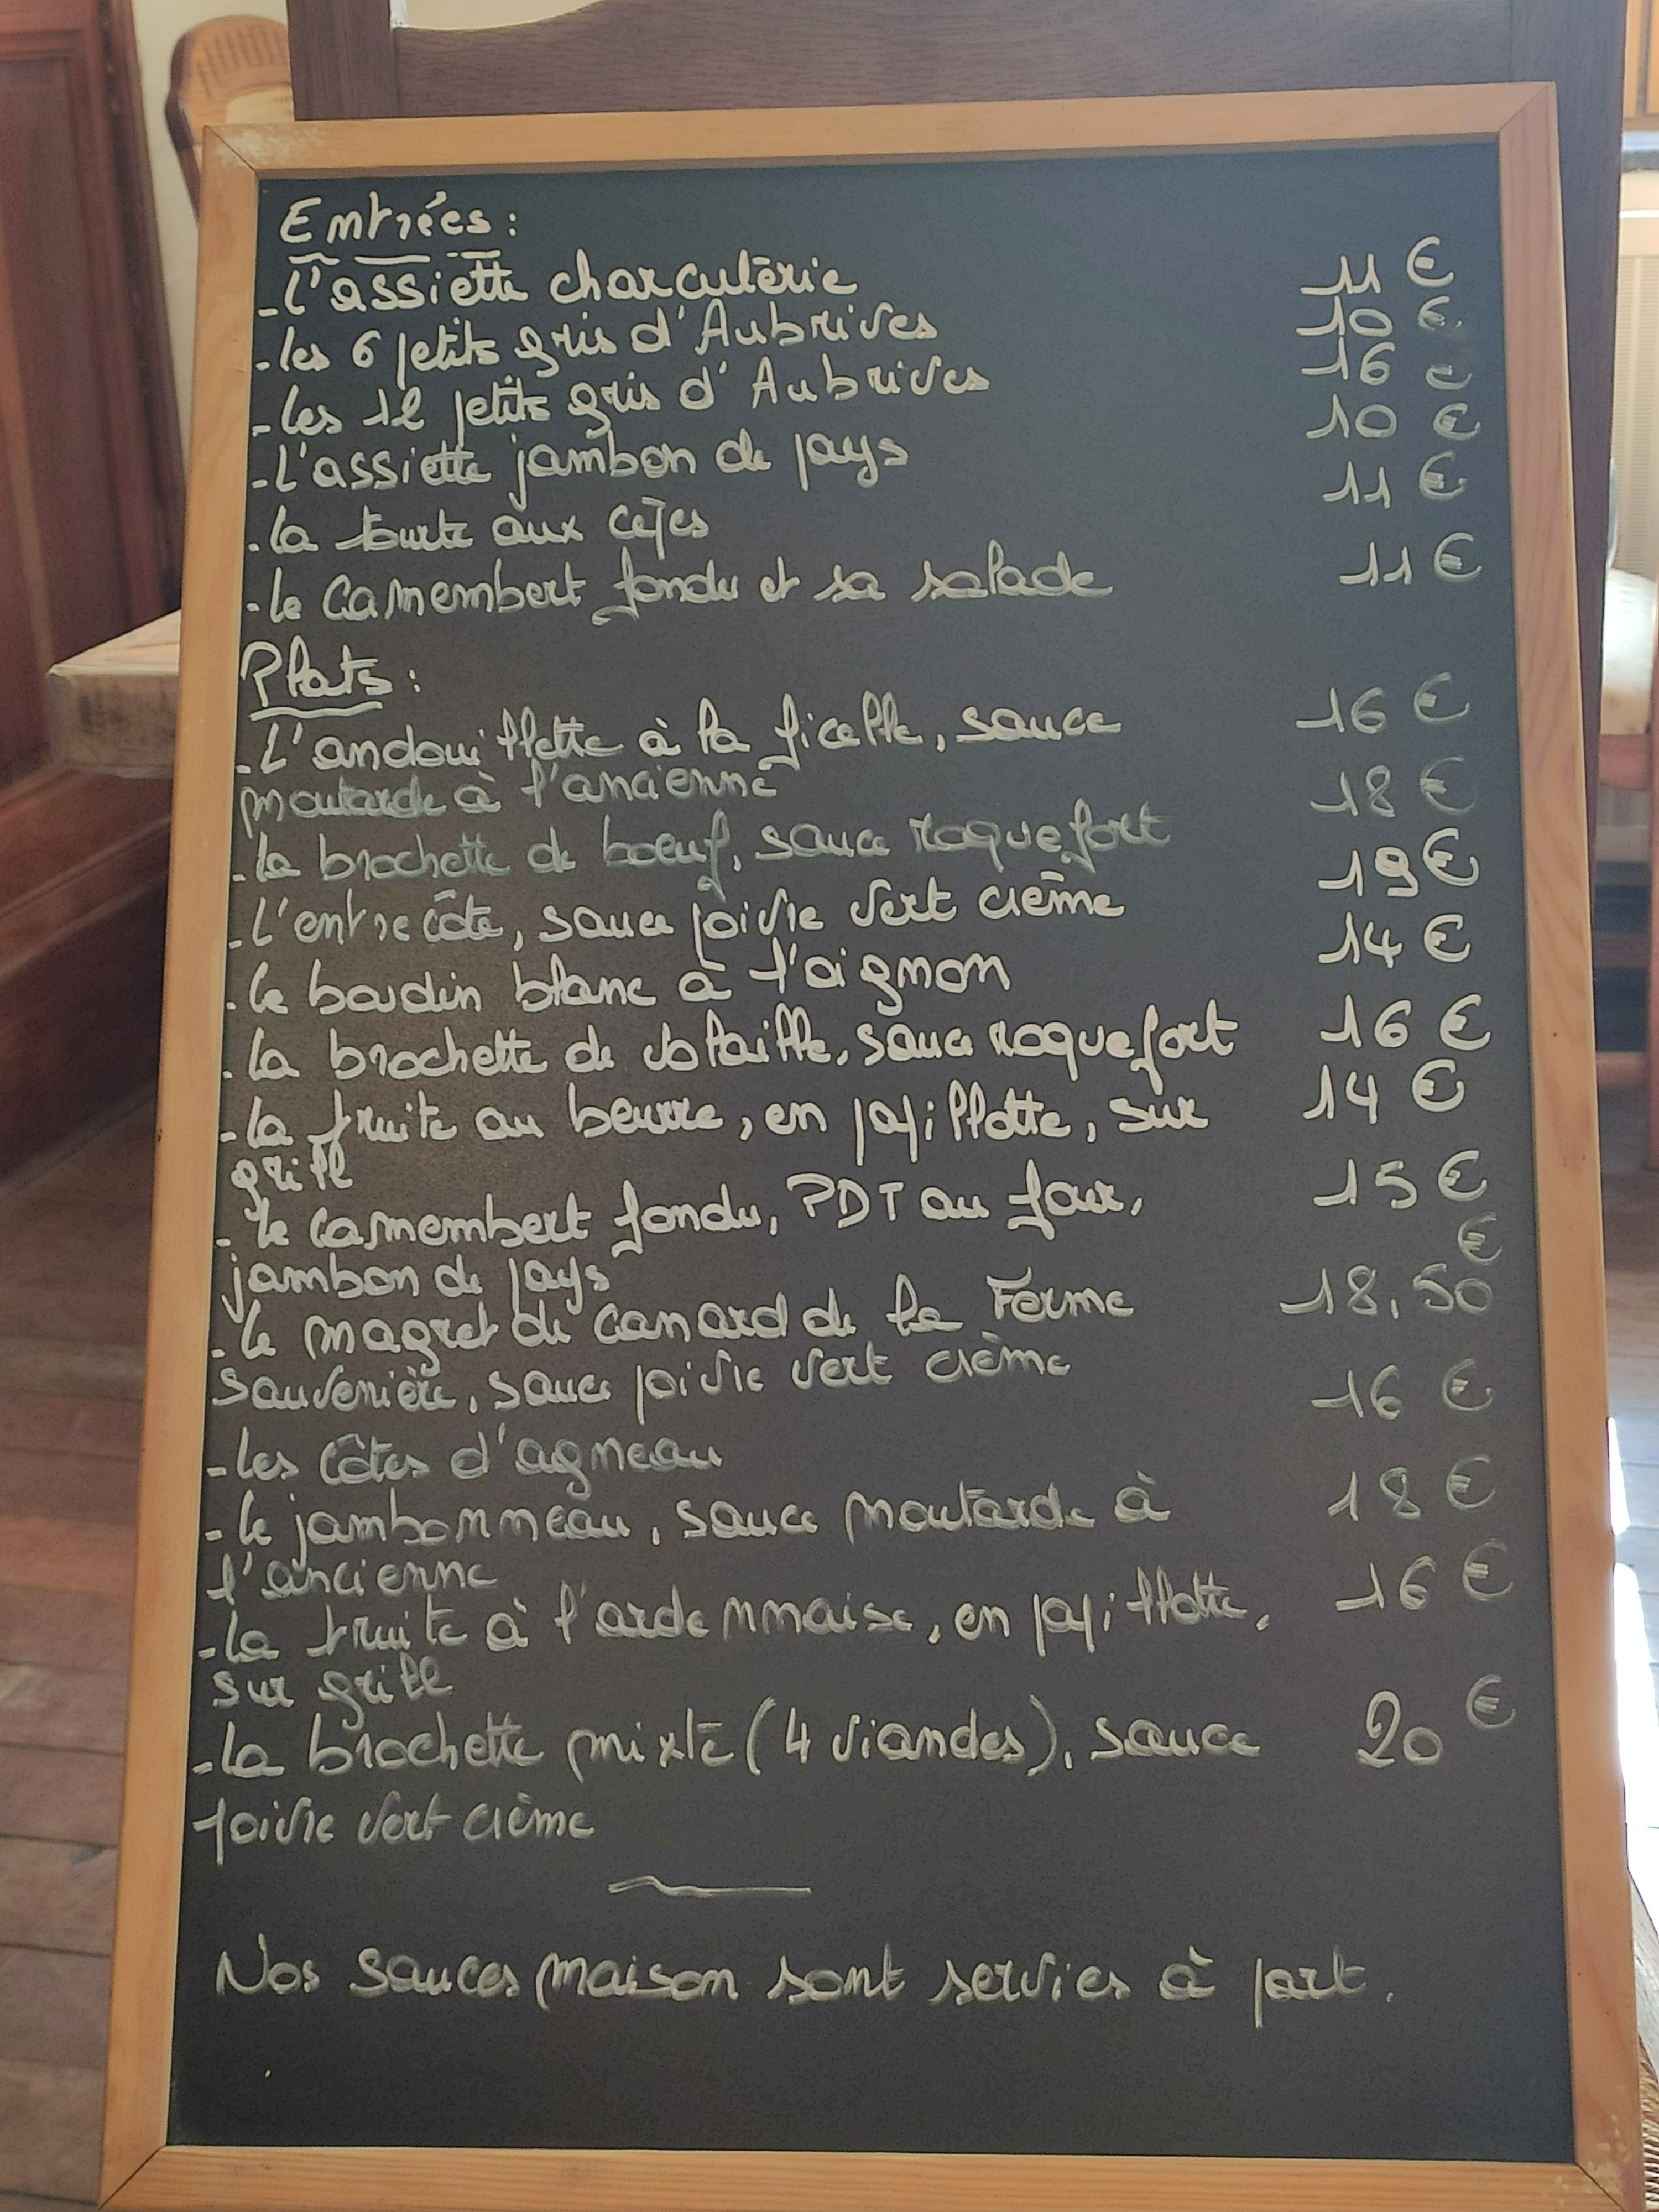 Entrées :
- L'assiette charcuterie 11 €
- les 6 petits gris d'Aubrives 10 €
- les 12 petits gris d'Aubrives 16 €
- L'assiette jambon de pays 10 €
- la tourte aux cèpes 11 €
- le Camembert fondu et sa salade 11 €
Plats :
- L'andouillette à la ficelle, sauce 16 €
moutarde à l'ancienne
- la brochette de boeuf, sauce roquefort 18 €
- L'entrecôte, sauce poivre vert crème 19 €
- le boudin blanc à l'oignon 14 €
- la brochette de volaille, sauce roquefort 16 €
- la truite au beurre, en papillotte, sur 14 €
grill
- le camembert fondu, PDT au four, 15 €
jambon de pays
- le magret de canard de la Ferme 18,50 €
Sauvenière, sauce poivre vert crème
- les côtes d'agneau 16 €
- le jambonneau, sauce moutarde à 18 €
l'ancienne
- la truite à l'ardennaise, en papillotte, 16 €
sur grill
- la brochette mixte (4 viandes), sauce 20 €
poivre vert crème
Nos sauces maison sont servies à part.